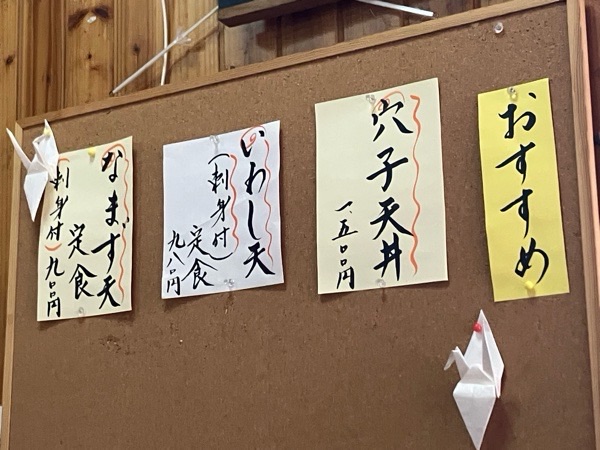 おすすめ
穴子天丼
一、五〇〇円
いわし天
(刺身付)定食
九八〇円
なまず天
定食
(刺身付)九〇〇円